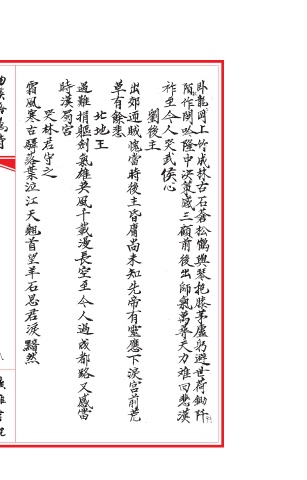 臥龍岡上竹成林古石蒼松鶴與琴抱膝茅廬躬避世荷鋤阡
陌作閒吟隆中決策感三顧前後出師氣萬尋天力難回悲漢
祚至今人哭武侯心
劉後主
出郊通賊愧當時後主皆庸尚未知先帝有靈應下淚宮前荒
草有餘悲
北地王
遇難捐軀劍氣雄英風千載漫長空至今人過成都路又感當
時漢蜀宮
哭林君守之
霜風寒古驛落葉泣江天翹首望羊石思君淚黯然